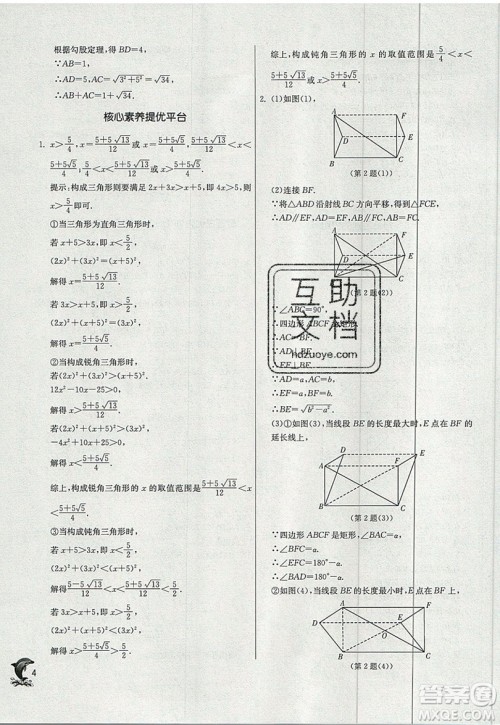 根据勾股定理，得 BD=4，
∵AB=1，
∴AD=5，AC=√(3²+5²)=√34.
∴AB+AC=1+√34.
核心素养提优平台
1. x>5/4 x=(5+5√13)/12 或 x=(5+5√5)/8 (5+5√13)/12<x<
(5+5√5)/8 5/4<x<(5+5√13)/12 或 x>(5+5√5)/8
提示：构成三角形则要满足 2x+3x>5，5+2x>
3x，即可.
①当三角形为直角三角形时，
若 x+5>3x，即 x<5/2，
(2x)²+(3x)²=(5+x)²，
解得 x=(5+5√13)/12.
若 3x>5+x，即 x>5/2，
(2x)²+(5+x)²=(3x)²，
解得 x=(5+5√5)/4.
②当构成锐角三角形时，
若(2x)²+(3x)²>(5+x)²，
12x²-10x-25>0，
解得 x>(5+5√13)/12.
若(2x)²+(5+x)²>(3x)²，
-4x²+10x+25>0，
解得 x<(5+5√5)/4.
综上，构成锐角三角形的 x 的取值范围是 (5+5√13)/12<x<
(5+5√5)/4.
③当构成钝角三角形时，
若 5+x>3x，即 x<5/2，
(2x)²+(3x)²<(5+x)²，
解得 (5-5√13)/12<x<(5+5√13)/12.
若 3x>5+x，即 x>5/2，
(2x)²+(5+x)²<(3x)²，
解得 x>(5+5√5)/4 或 x<(5-5√5)/4.
4
综上，构成钝角三角形的 x 的取值范围是 5/4<x<
(5+5√13)/12 或 x>(5+5√5)/4.
2. (1)如图(1)，
A
F
D
E
B
C
(第 2 题(1))
(2)连接 BF.
∵将△ABD 沿射线 BC 方向平移，得到△FCE，
∴AD∥EF，AD=EF；AB∥FC，AB=FC.
(第 2 题(2))
∵∠ABC=90°，
∴四边形 ABCF 是矩形.
∴AC=BF.
∵AD⊥BE，
∴EF⊥BE.
∵AD=a，AC=b，
∴EF=a，BF=b.
∴BE=√(b²-a²).
(3)①如图(3)，当线段 BE 的长度最大时，E 点在 BF 的
延长线上，
D
E
A
F
B
C
(第 2 题(3))
∵四边形 ABCF 是矩形，
∴∠BFC=α.
∴∠EFC=180°-α.
∴∠ABD=180°-α.
②如图(4)，当线段 BE 的长度最小时，E 点在 BF 上，
A
F
D
E
O
B
C
(第 2 题(4))
互助
文档
hdzuoye.com
答案圈
MXQE.COM